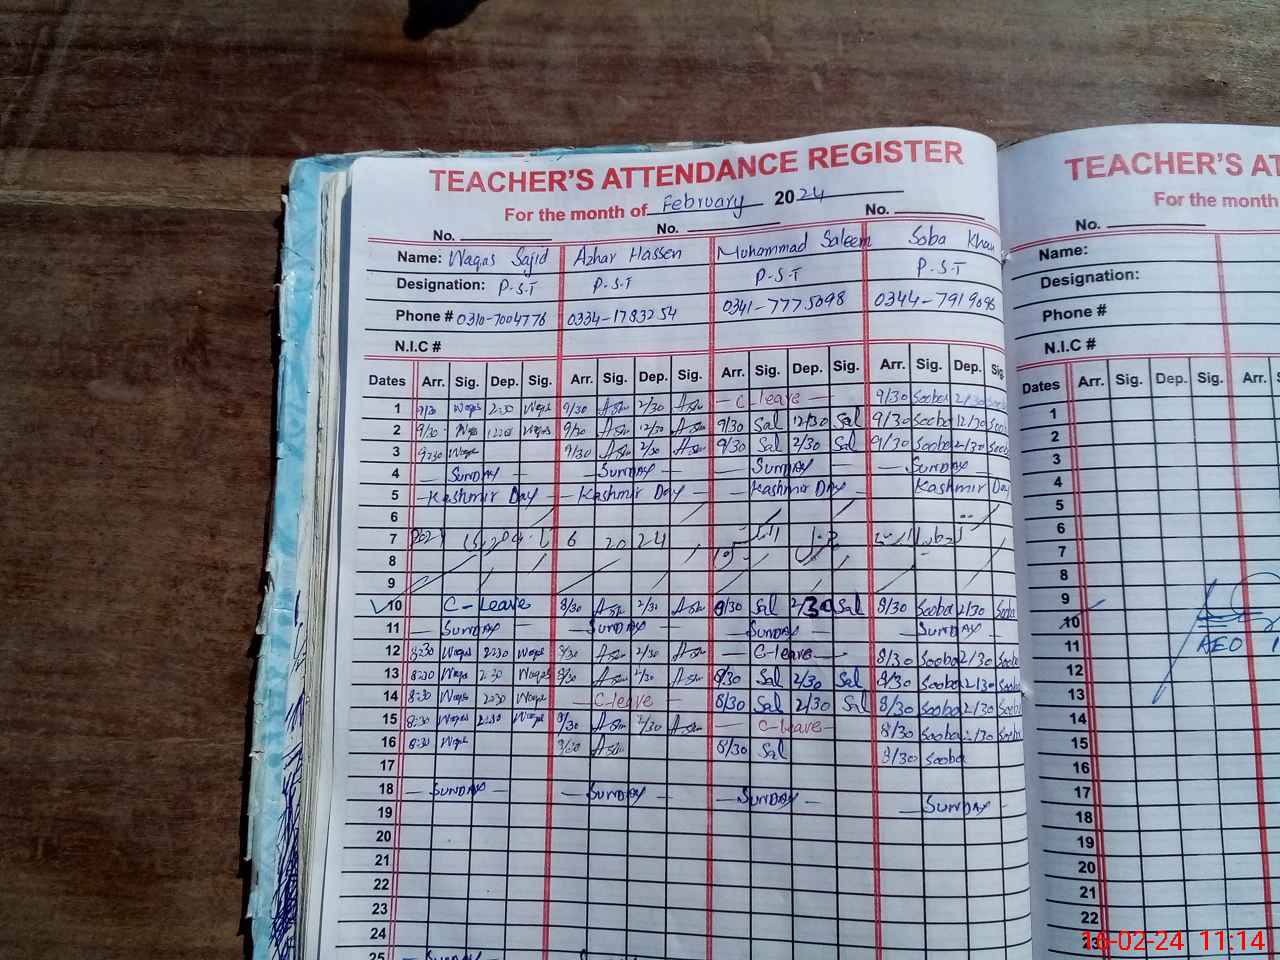 TEACHER'S ATTENDANCE REGISTER
For the month of February 2024
No. No. No.
Name: Waqas Sajid Azhar Hassen Muhammad Saleem Soba Khan
Designation: P.S.T P.S.T P.S.T P.S.T
Phone # 0310-7004776 0334-1783254 0341-7775098 0344-7919098
N.I.C #
Dates Arr. Sig. Dep. Sig. Arr. Sig. Dep. Sig. Arr. Sig. Dep. Sig. Arr. Sig. Dep. Sig.
1 9/30 Waqs 2:30 Waqs 9/30 2/30 - C-leave - 9/30 Sooba 2/30 Sooba
2 9/30 Waqs 9/30 12/30 9/30 Sal 12/30 Sal 9/30 Sooba 12/30
3 9:30 Waqs 9/30 2/30 9/30 Sal 2/30 Sal 9/30 Sooba 2/30
4 - SUNDAY - - SUNDAY - - SUNDAY - - SUNDAY -
5 - Kashmir Day - Kashmir Day - Kashmir DAY - Kashmir Day
6
7 6 2024
8
9
10 C-Leave 8/30 2/30 8/30 Sal 2/30 Sal 8/30 Sooba 2/30 Sooba
11 - SUNDAY - - SUNDAY - - SUNDAY - - SUNDAY -
12 8:30 Waqs 2:30 Waqs 8/30 2/30 - C-leave - 8/30 Sooba 2/30 Sooba
13 8:30 Waqs 2:30 Waqs 8/30 2/30 8/30 Sal 2/30 Sal 8/30 Sooba 2/30 Sooba
14 8:30 Waqs 2:30 Waqs - C-leave - 8/30 Sal 2/30 Sal 8/30 Sooba 2/30 Sooba
15 8:30 Waqs 2:30 Waqs 8/30 2/30 - C-leave - 8/30 Sooba 2/30 Sooba
16 8:30 Waqs 8/30 8/30 Sal 8/30 Sooba
17
18 - SUNDAY - - SUNDAY - - SUNDAY - - SUNDAY -
19
20
21
22
23
24
25 - Sunday
TEACHER'S AT
For the month
No.
Name:
Designation:
Phone #
N.I.C #
Dates Arr. Sig. Dep. Sig. Arr. S
1
2
3
4
5
6
7
8
9
10
11 AEO
12
13
14
15
16
17
18
19
20
21
22
23
16-02-24 11:14